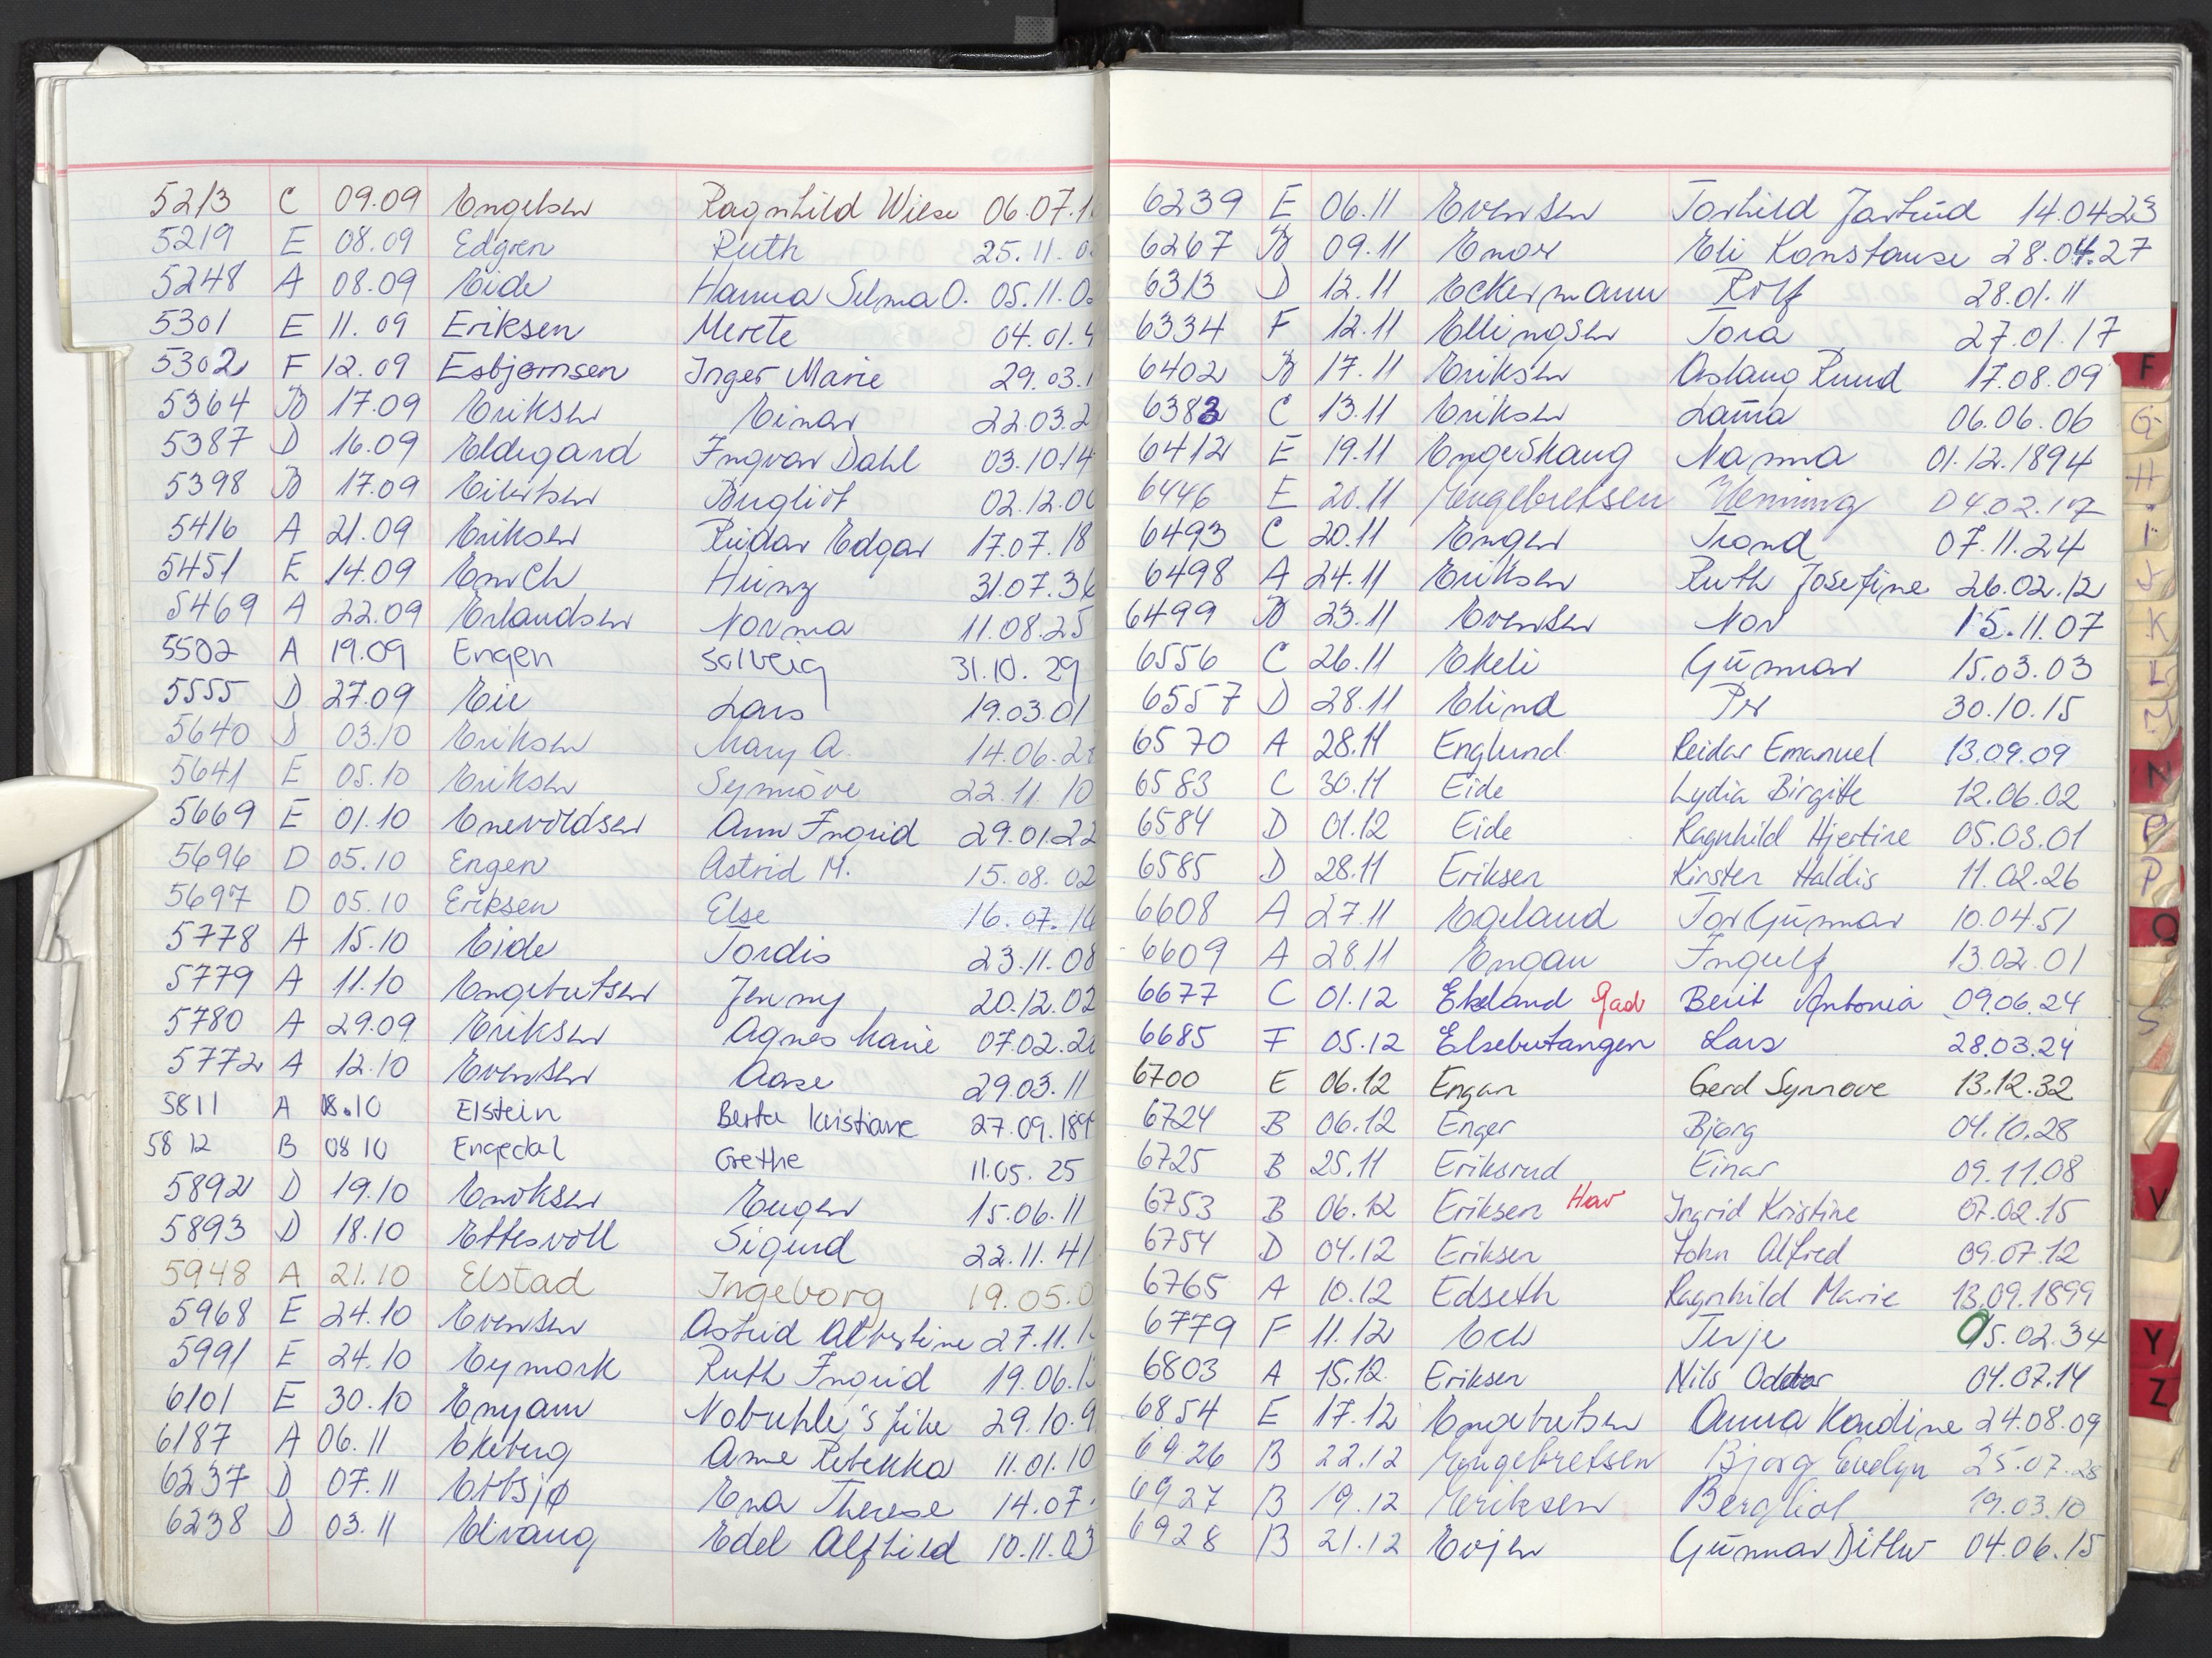 5213 C 09.09 Engelsen Ragnhild Wiese 06.07.1
5219 E 08.09 Edgren Ruth 25.11.0
5248 A 08.09 Eide Hanna Selma O. 05.11.0
5301 E 11.09 Eriksen Merete 04.01.4
5302 F 12.09 Esbjørnsen Inger Marie 29.03.1
5364 B 17.09 Eriksen Einar 22.03.2
5387 D 16.09 Eldegard Ingvar Dahl 03.10.14
5398 B 17.09 Eilertsen Bergliot 02.12.00
5416 A 21.09 Eriksen Reidar Edgar 17.07.18
5451 E 14.09 Emich Heinz 31.07.36
5469 A 22.09 Erlandsen Norma 11.08.25
5502 A 19.09 Engen Solveig 31.10.29
5555 D 27.09 Eie Lars 19.03.01
5640 D 03.10 Eriksen Mary A. 14.06.2
5641 E 05.10 Eriksen Synnöve 22.11.10
5669 E 01.10 Enevoldsen Ann Ingrid 29.01.22
5696 D 05.10 Engen Astrid M. 15.08.02
5697 D 05.10 Eriksen Else 16.07.14
5778 A 15.10 Eide Tordis 23.11.08
5779 A 11.10 Engebretsen Jenny 20.12.02
5780 A 29.09 Eriksen Agnes Marie 07.02.20
5772 A 12.10 Evensen Aase 29.03.11
5811 A 18.10 Elstein Berta Kristiane 27.09.189
5812 B 08 10 Engedal Grethe 11.05.25
5892 D 19.10 Enoksen Eugen 15.06.11
5893 D 18.10 Ettesvoll Sigurd 22.11.41
5948 A 21.10 Elstad Ingeborg 19.05.0
5968 E 24.10 Evensen Astrid Albertine 27.11.1
5991 E 24.10 Eymork Ruth Ingrid 19.06.1
6101 E 30.10 Enyam Nobuhle's pike 29.10.9
6187 A 06.11 Ekeberg Arne Rebekka 11.01.10
6237 D 07.11 Ettsjø Ena Therese 14.07.
6238 D 03.11 Edvang Edel Alfhild 10.11.03
6239 E 06.11 Evensen Torhild Jartrud 14.04.23
6267 B 09.11 Enor Eli Konstanse 28.04.27
6313 D 12.11 Eckermann Rolf 28.01.11
6334 F 12.11 Ellingsen Tora 27.01.17
6402 B 17.11 Eriksen Aslaug Ruud 17.08.09
6383 C 13.11 Eriksen Laura 06.06.06
6412 E 19.11 Engeskaug Nanna 01.12.1894
6446 E 20.11 Engebretsen Henning 04.02.17
6493 C 20.11 Enger Trond 07.11.24
6498 A 24.11 Eriksen Ruth Josefine 26.02.12
6499 B 23.11 Evensen Nor 15.11.07
6556 C 26.11 Ekeli Gunnar 15.03.03
6557 D 28.11 Elind Per 30.10.15
6570 A 28.11 Englund Reidar Emanuel 13.09.09
6583 C 30.11 Eide Lydia Birgitte 12.06.02
6584 D 01.12 Eide Ragnhild Hjertine 05.03.01
6585 D 28.11 Eriksen Kirsten Haldis 11.02.26
6608 A 27.11 Egeland Tor Gunnar 10.04.51
6609 A 28.11 Engan Ingulf 13.02.01
6677 C 01.12 Ekeland Gad Berit Antonia 09.06.24
6685 F 05.12 Elsebutangen Lars 28.03.24
6700 E 06.12 Engan Gerd Synnove 13.12.32
6724 B 06.12 Enger Bjørg 04.10.28
6725 B 25.11 Eriksrud Einar 09.11.08
6753 B 06.12 Eriksen Hav Ingrid Kristine 07.02.15
6754 D 04.12 Eriksen John Alfred 09.07.12
6765 A 10.12 Edseth Ragnhild Marie 13.09.1899
6779 F 11.12 Eck Terje 05.02.34
6803 A 15.12. Eriksen Nils Oddvar 04.07.14
6854 E 17.12 Engebretsen Anna Kardine 24.08.09
6926 B 22.12 Engebretsen Bjørg Evelyn 25.07.28
6927 B 19.12 Eriksen Bergliot 19.03.10
6928 B 21.12 Evjen Gunnar Ditlev 04.06.15
F
G
H
I
J
K
L
M
N
O
P
Q
S
V
Y
Z